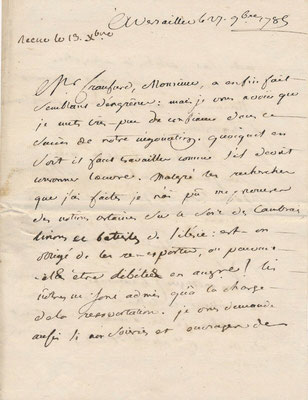 a Versailles le 27. 9bre 1785
Recue le 13. Xbre
Mr Craufurd, Monsieur, a enfin fait
semblant d'agréer: mais je vous avoue que
je mets très-peu de confiance dans ce
succès de notre négociation. quoiqu'il en
soit il faut travailler comme s'il devoit
couronner l'œuvre. Malgré les recherches
que j'ai faites je n'ai pû me procurer
des notions certaines sur la soie de
linons et batistes de Silésie: est-on
obligé de les re-exporter, ou peuvent-
elle être débitées en angre! les
nôtres ne sont admis qu'à la charge
de la réexportation. je vous demande
aussi si nos soieries et ouvrages de